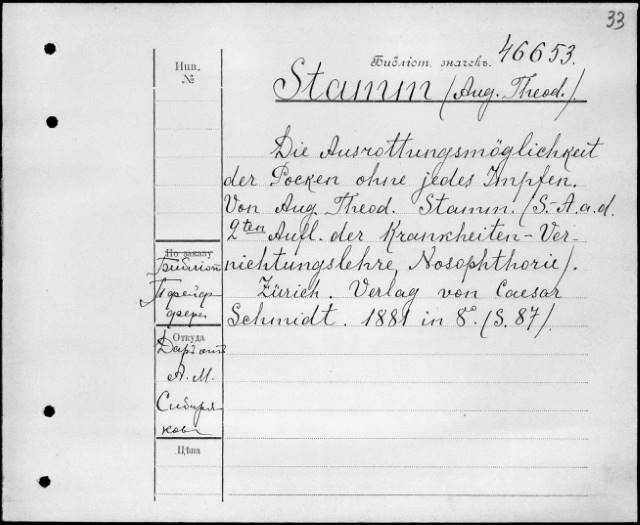 33
Библіот. значекъ. 46653.
Инв.
№
Stamm (Aug. Theod.).
Die Ausrottungsmöglichkeit
der Pocken ohne jedes Impfen.
Von Aug. Theod. Stamm. (S.-A. a. d.
2ten Aufl. der Krankheiten-Ver-
nichtungslehre, Nosophthorie).
Zürich. Verlag von Caesar
Schmidt. 1881 in 8°. (S. 87).
По заказу
Откуда
Даръ отъ
А. М.
Сибиря-
кова
Цѣна